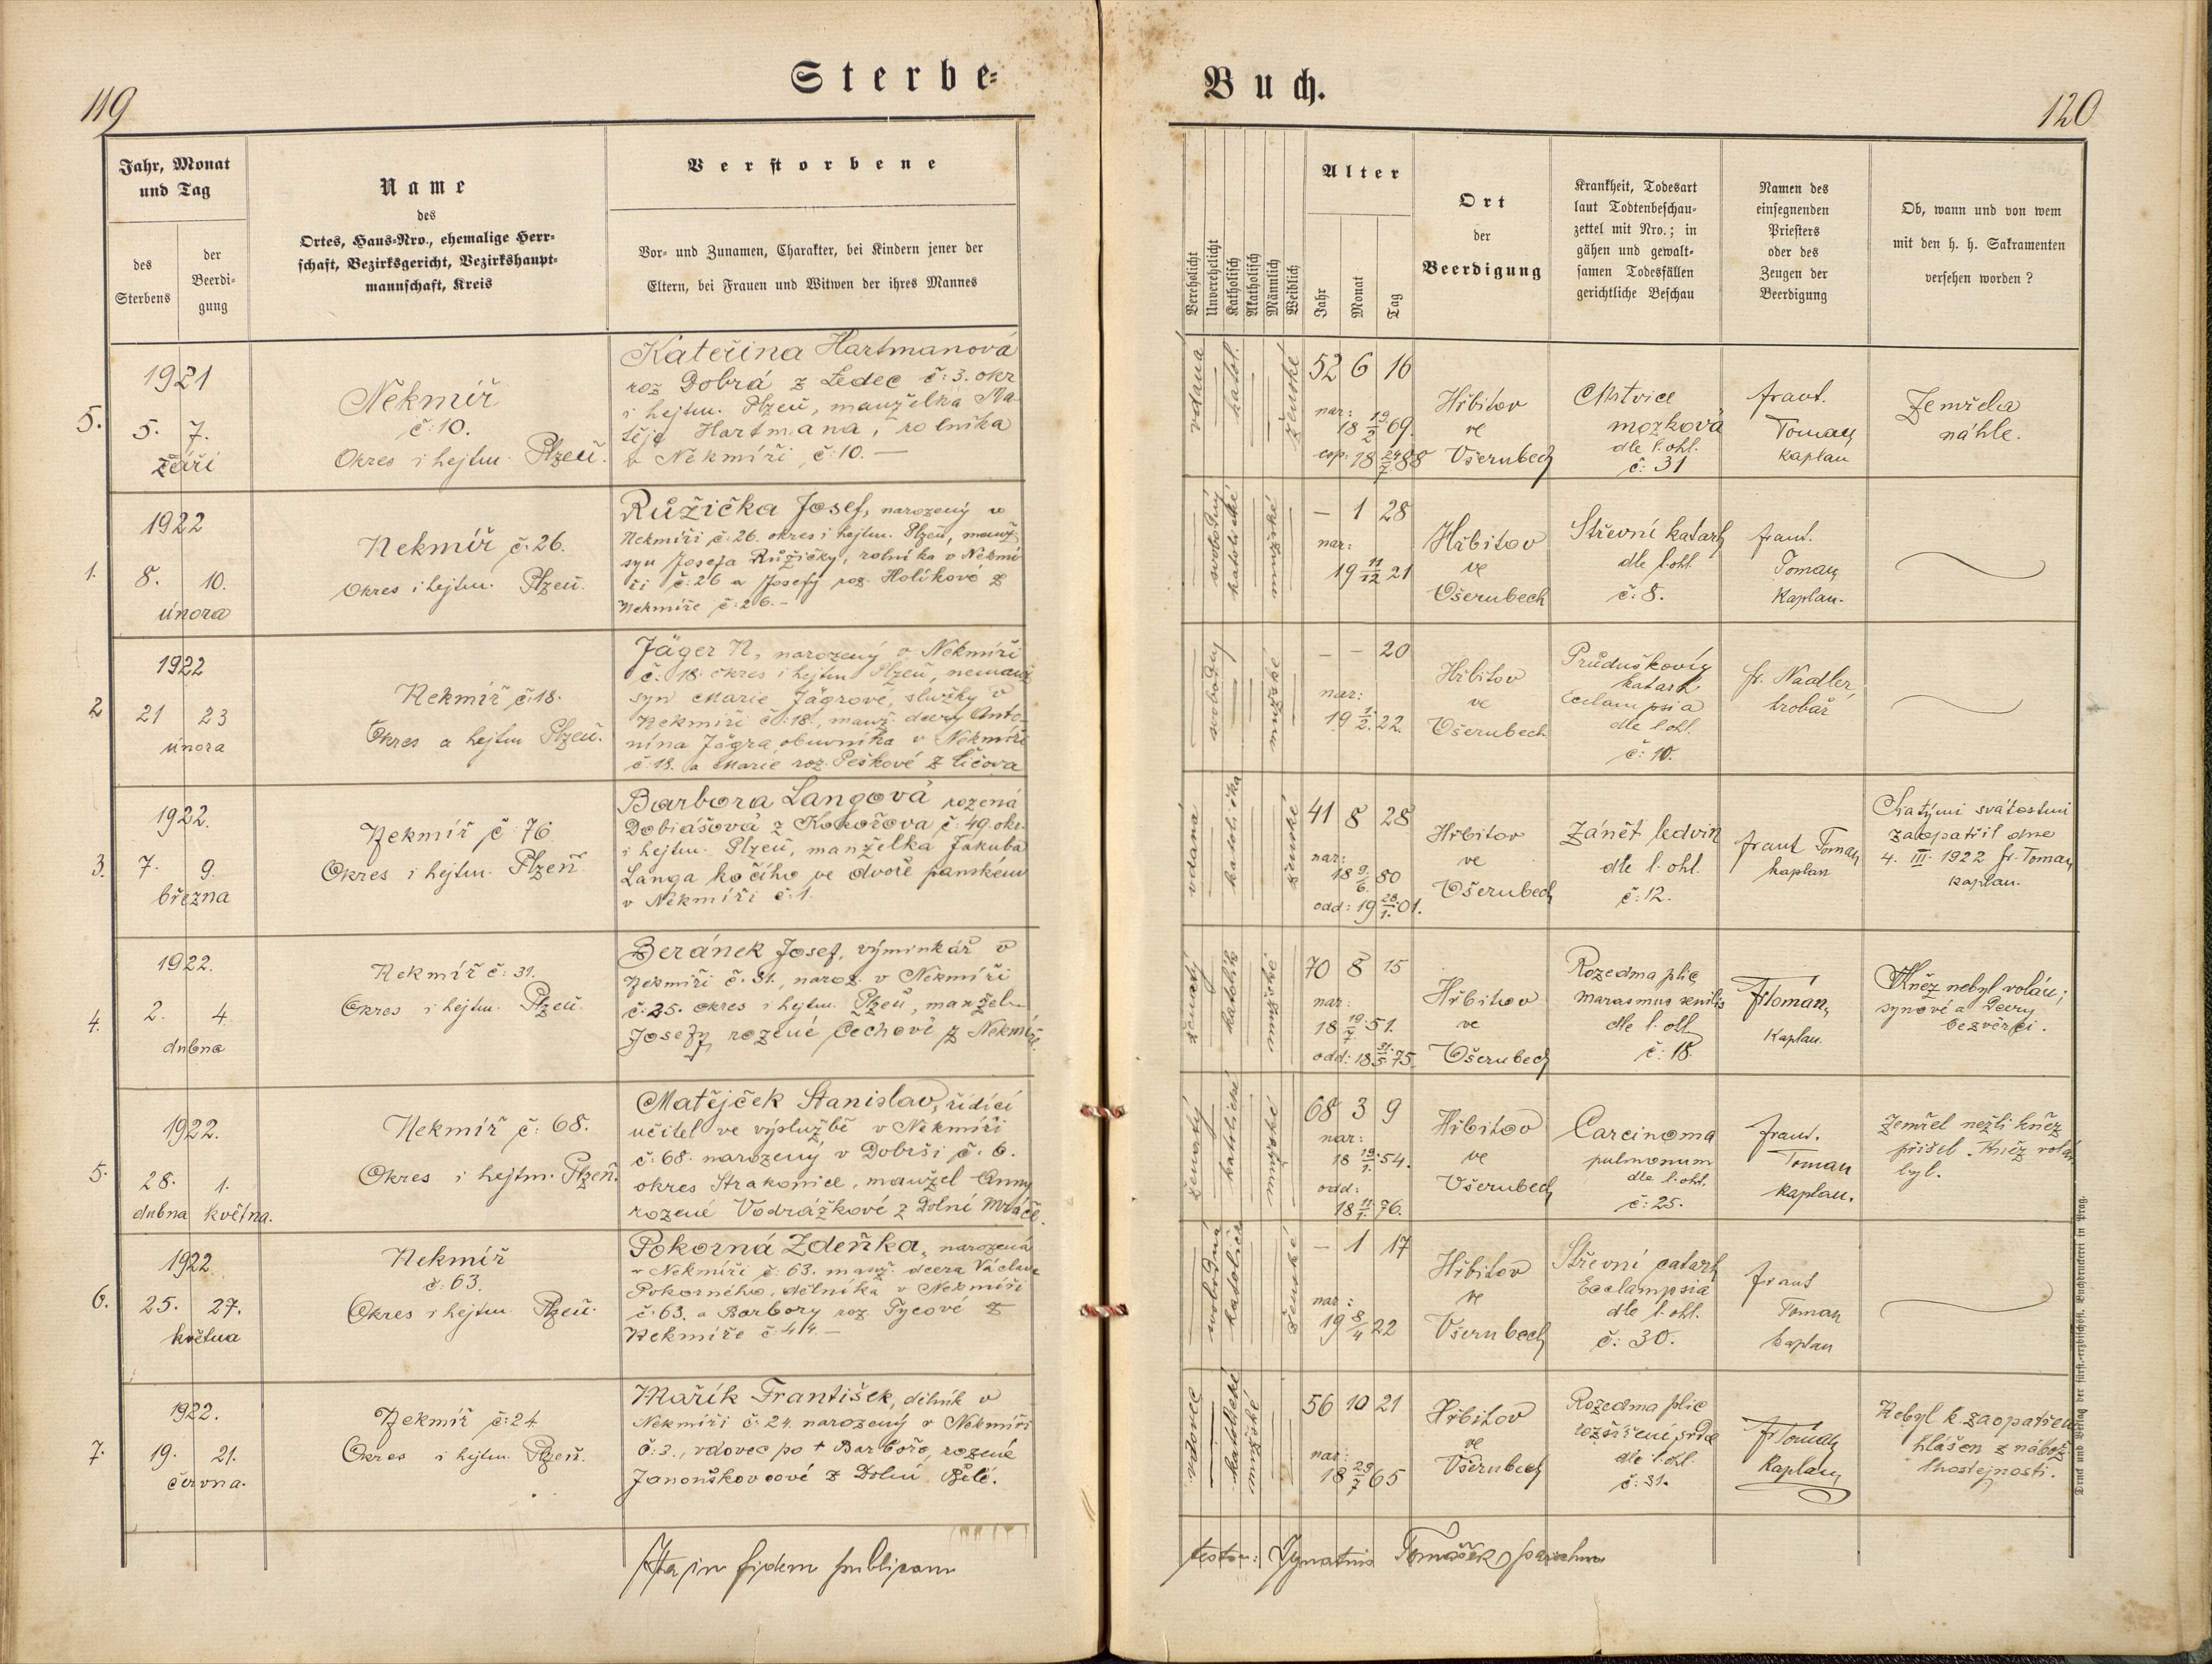 119
Sterbe=
Jahr, Monat
und Tag
des
Sterbens
der
Beerdi-
gung
Name
des
Ortes, Haus=Nro., ehemalige Herr=
schaft, Bezirksgericht, Bezirkshaupt=
mannschaft, Kreis
Verstorbene
Vor- und Zunamen, Charakter, bei Kindern jener der
Eltern, bei Frauen und Witwen der ihres Mannes
5.
1921
5. 7.
září
Nekmíř
č: 10.
Okres i hejtm. Plzeň.
Kateřina Hartmanová
roz Dobrá z Ledec č: 3. okr
i hejtm. Plzeň, manželka Ma-
těje Hartmana, rolníka
v Nekmíři č: 10. —
1.
1922
8. 10.
února
Nekmíř č: 26.
Okres i hejtm. Plzeň.
Růžička Josef, narozený v
Nekmíři č: 26. okres i hejtm. Plzeň, manž.
syn Josefa Růžičky, rolníka v Nekmí
ři č: 26 a Josefy roz. Holíkové z
Nekmíře č: 26. -
2
1922
21 23
února
Nekmíř č: 18.
Okres a hejtm Plzeň.
Jäger N, narozený v Nekmíři
č: 18. okres i hejtm Plzeň, nemanž
syn Marie Jägrové, služky v
Nekmíři č: 18., manž. dcery Anto-
nína Jägra, obuvníka v Nekmíři
č: 18. a Marie roz. Peškové z Líčova
3.
1922.
7. 9.
března
Nekmíř č: 76
Okres i hejtm. Plzeň
Barbora Langová rozená
Dobiášová z Kokořova č: 49. okr.
i hejtm. Plzeň, manželka Jakuba
Langa kočího ve dvoře panském
v Nekmíři č: 1.
4.
1922.
2. 4.
dubna
Nekmíř č: 31.
Okres i hejtm. Plzeň.
Beránek Josef, výminkář v
Nekmíři č. 31., naroz. v Nekmíři
č: 25. okres i hejtm. Plzeň, manžel
Josefy, rozené Čechové z Nekmíře.
5.
1922.
28. 1.
dubna května.
Nekmíř č: 68.
Okres i hejtm. Plzeň.
Matějček Stanislav, řídící
učitel ve výslužbě v Nekmíři
č: 68. narozený v Dobrši č. 6.
okres Strakonice, manžel Anny
rozené Vodrážkové z Dolní
6.
1922
25. 27.
května
Nekmíř
č: 63.
Okres i hejtm. Plzeň.
Pokorná Zdeňka, narozená
v Nekmíři č: 63. manž. dcera Václava
Pokorného, dělníka v Nekmíři
č: 63. a Barbory roz. Tycové z
Nekmíře č: 44. —
7.
1922.
19. 21.
června.
Nekmíř č: 24
Okres i hejtm. Plzeň.
Mařík František, dělník v
Nekmíři č: 24. narozený v Nekmíři
č: 3., vdovec po † Barboře, rozené
Janouškovcové z Dolní Bělé.
Ita in fidem publicam
Buch.
120
Verehelicht
Unverehelicht
Katholisch
Akatholisch
Männlich
Weiblich
Alter
Jahr
Monat
Tag
Ort
der
Beerdigung
Krankheit, Todesart
laut Todtenbeschau-
zettel mit Nro.; in
gähen und gewalt-
samen Todesfällen
gerichtliche Beschau
Namen des
einsegnenden
Priesters
oder des
Zeugen der
Beerdigung
Ob, wann und von wem
mit den h. h. Sakramenten
versehen worden?
vdaná
katol.
ženské
52 6 16
nar:
18 19/2 69.
cop: 18 24/7 88
Hřbitov
ve
Všerubech
Mrtvice
mozková
dle l. ohl.
č: 31
frant.
Toman
kaplan
Zemřela
náhle.
svobodný
katolické
mužské
— 1 28
nar:
19 11/12 21
Hřbitov
ve
Všerubech
Střevní katarh
dle l. ohl.
č: 8.
frant.
Toman
Kaplan.
svobodný
mužské
— - 20
nar:
19 1/2. 22.
Hřbitov
ve
Všerubech
Průduškový
katarh
Eclampsia
dle l. ohl.
č: 10.
fr. Nadler,
hrobař
vdaná
katolička
ženské
41 8 28
nar:
18 9/6. 80
odd: 19 28/1. 01.
Hřbitov
ve
Všerubech
Zánět ledvin
dle l. ohl.
č: 12.
frant Toman
kaplan
Svatými svátostmi
zaopatřil dne
4. III. 1922 fr. Toman
kaplan.
ženatý
katolík
mužské
70 8 15
nar:
18 19/7. 51.
odd: 18 31/5 75.
Hřbitov
ve
Všerubech
Rozedma plic
marasmus senilis
dle l. ohl
č: 18.
fr Toman,
Kaplan.
Kněz nebyl volán;
synové a Dcery
bezvěrci.
ženatý
katolické
mužské
68 3 9
nar:
18 19/1. 54.
odd:
18 11/1. 76.
Hřbitov
ve
Všerubech
Carcinoma
pulmonum
dle l. ohl.
č: 25.
frant.
Toman
kaplan.
Zemřel nežli kněz
přišel. Kněz volán
byl.
svobodná
katolické
ženské
— 1 17
nar:
19 8/4 22
Hřbitov
ve
Všerubech
Střevní catarh
Ecclampsia
dle l. ohl.
č: 30.
frant
Toman
kaplan
vdovec
katolické
mužské
56 10 21
nar:
18 29/7 65
Hřbitov
ve
Všerubech
Rozedma plic
rozšíření srdce
dle l. ohl.
č: 31.
fr Toman
Kaplan
Nebyl k zaopatření
hlášen z nábož.
lhostejnosti.
testor: Ignatius Tomášek, parochus
Druck und Verlag der fürst.-erzbischöfl. Buchdruckerei in Prag.